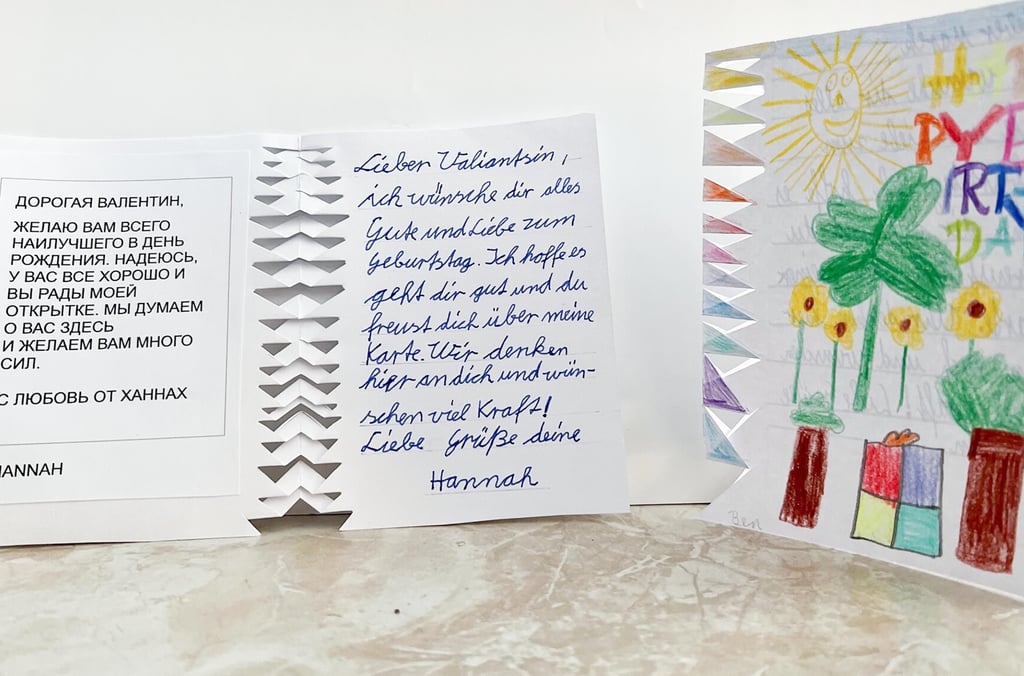 ДОРОГАЯ ВАЛЕНТИН,
ЖЕЛАЮ ВАМ ВСЕГО
НАИЛУЧШЕГО В ДЕНЬ
РОЖДЕНИЯ. НАДЕЮСЬ,
У ВАС ВСЕ ХОРОШО И
ВЫ РАДЫ МОЕЙ
ОТКРЫТКЕ. МЫ ДУМАЕМ
О ВАС ЗДЕСЬ
И ЖЕЛАЕМ ВАМ МНОГО
СИЛ.
С ЛЮБОВЬ ОТ ХАННАХ
HANNAH
Lieber Valiantsin,
ich wünsche dir alles
Gute und Liebe zum
Geburtstag. Ich hoffe es
geht dir gut und du
freust dich über meine
Karte. Wir denken
hier an dich und wün-
schen viel Kraft!
Liebe Grüße deine
Hannah
PYB
IRT
DA
Ben